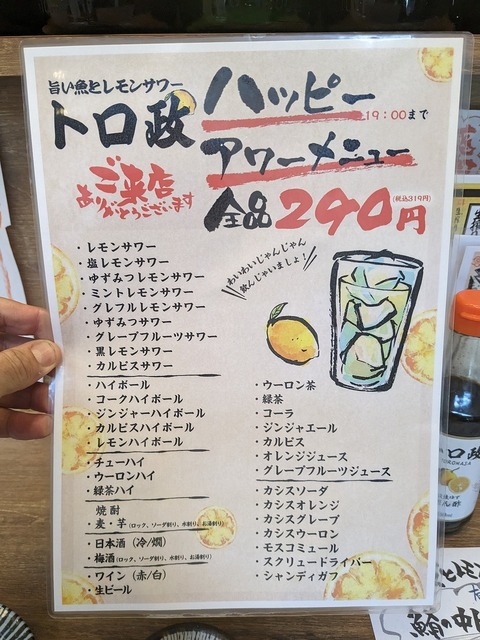 旨い魚とレモンサワー
トロ政
ハッピー
19:00まで
アワーメニュー
ご来店
ありがとうございます
全品290円
(税込319円)
わいわいじゃんじゃん
飲んじゃいましょ!
・レモンサワー
・塩レモンサワー
・ゆずみつレモンサワー
・ミントレモンサワー
・グレフルレモンサワー
・ゆずみつサワー
・グレープフルーツサワー
・黒レモンサワー
・カルピスサワー
・ハイボール
・コークハイボール
・ジンジャーハイボール
・カルピスハイボール
・レモンハイボール
・チューハイ
・ウーロンハイ
・緑茶ハイ
焼酎
・麦・芋(ロック、ソーダ割り、水割り、お湯割り)
・日本酒(冷/燗)
・梅酒(ロック、ソーダ割り、水割り、お湯割り)
・ワイン(赤/白)
・生ビール
・ウーロン茶
・緑茶
・コーラ
・ジンジャエール
・カルピス
・オレンジジュース
・グレープフルーツジュース
・カシスソーダ
・カシスオレンジ
・カシスグレープ
・カシスウーロン
・モスコミュール
・スクリュードライバー
・シャンディガフ
トロ政